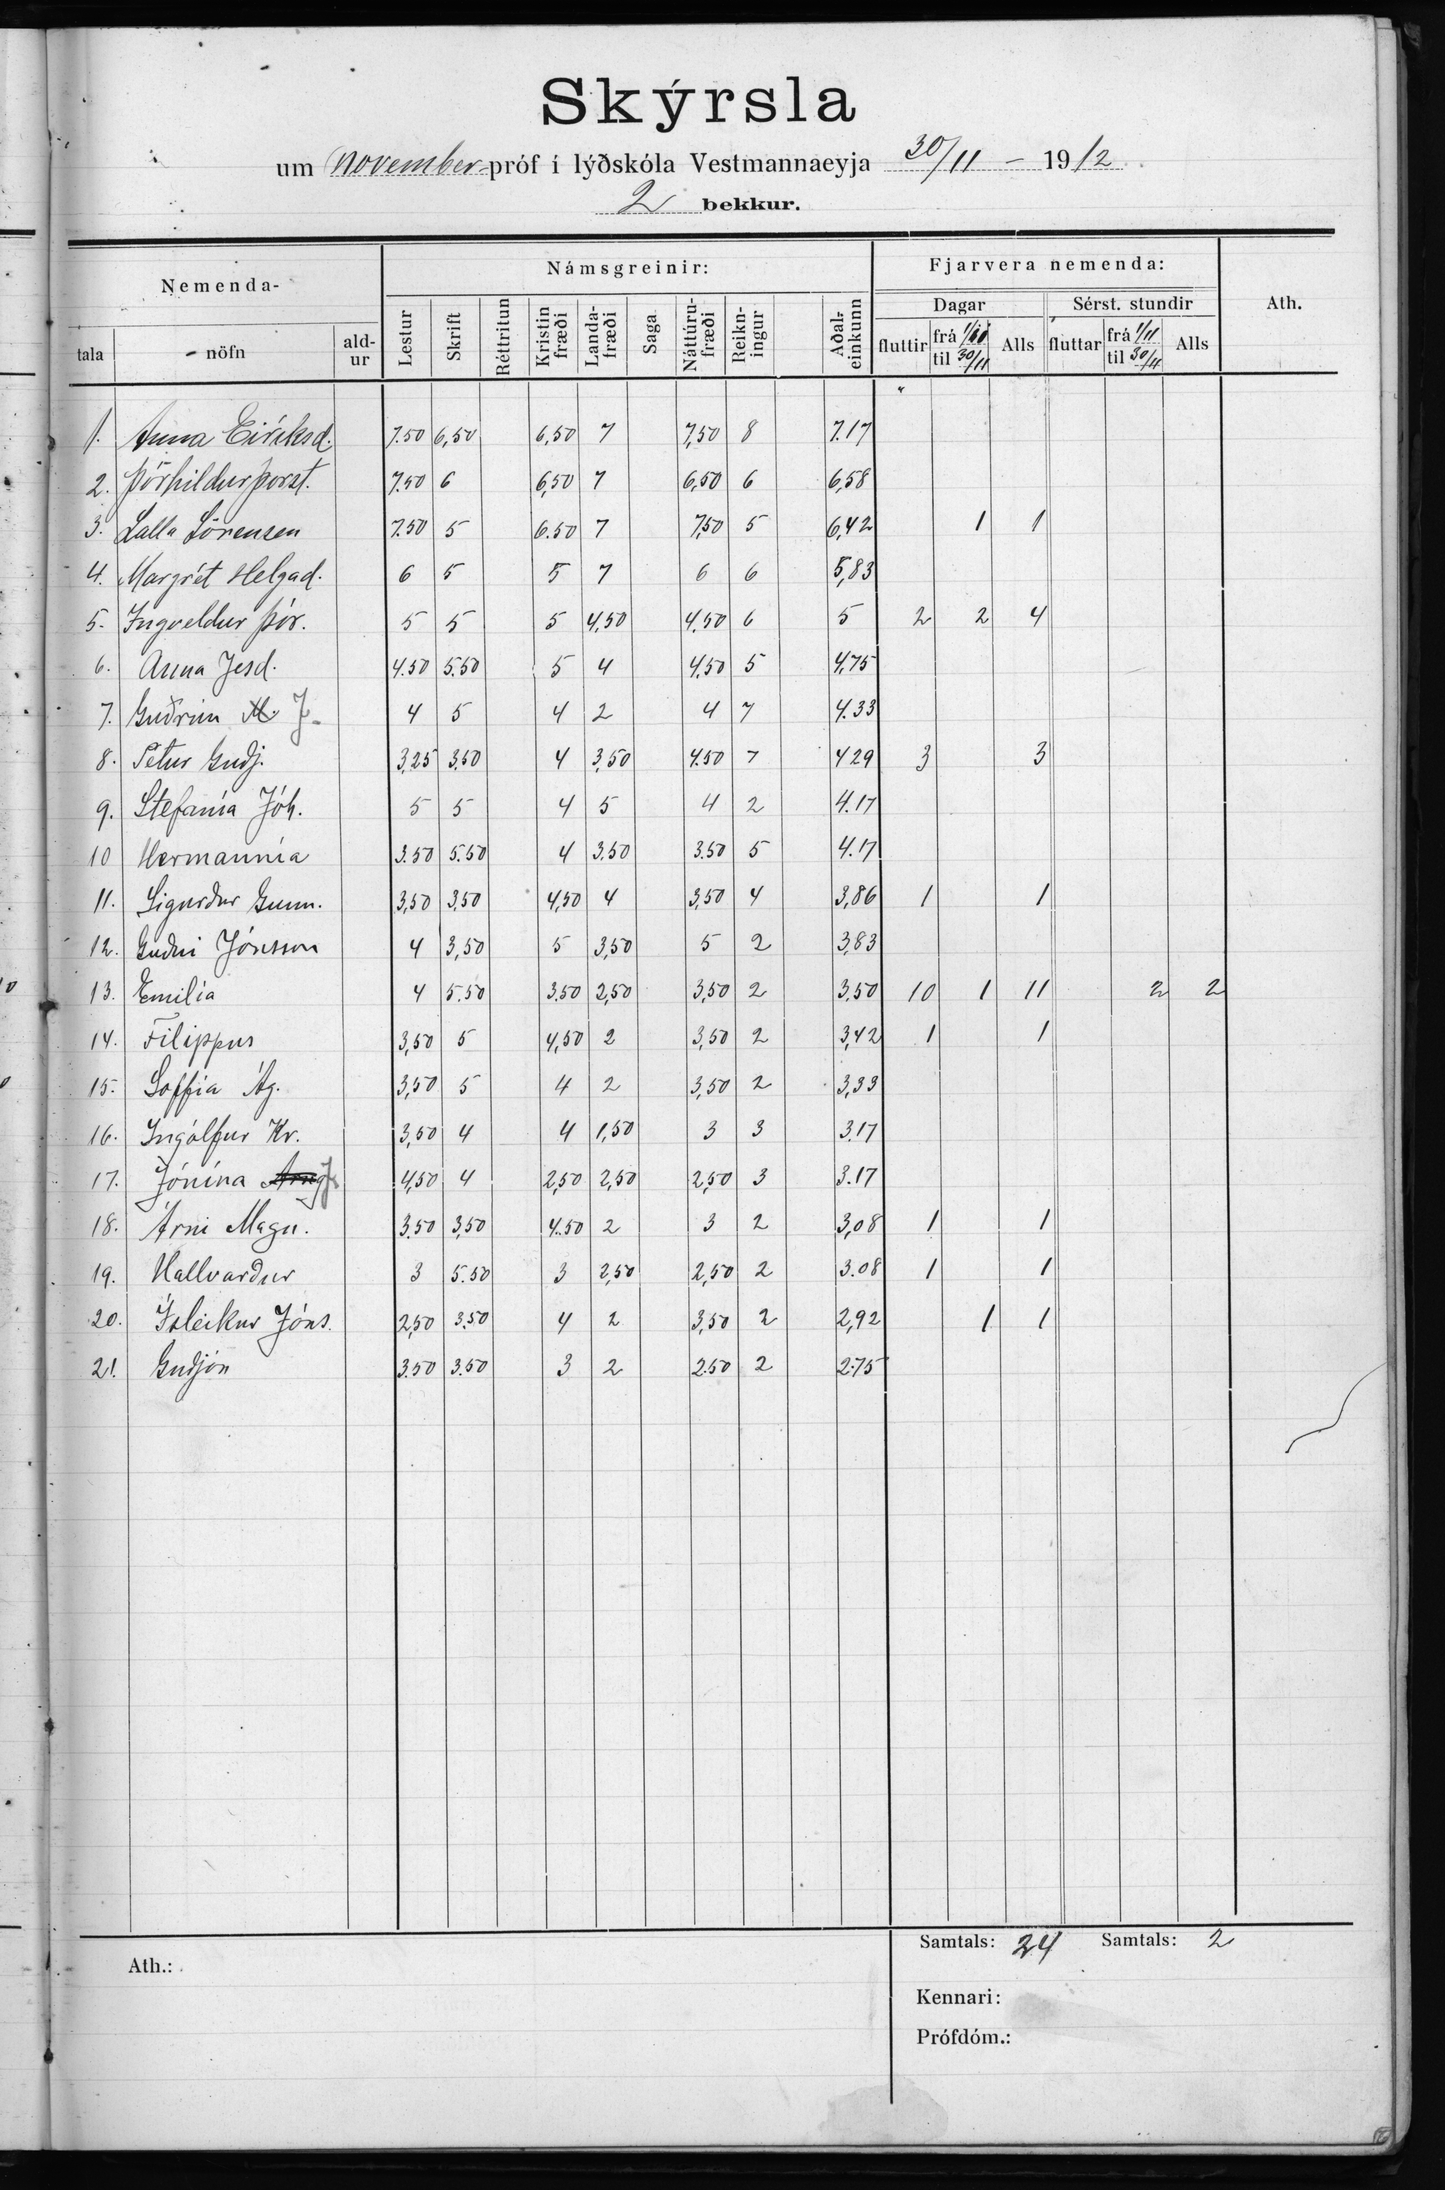 Skýrsla
um november-próf í lýðskóla Vestmannaeyja 30/11 – 1912
2 bekkur.
Nemenda- Námsgreinir: Fjarvera nemenda: Ath.
Dagar Sérst. stundir
tala - nöfn ald-ur Lestur Skrift Réttritun Kristin fræði Landa-fræði Saga Náttúru-fræði Reikn-ingur Aðal-einkunn fluttir frá til 30/11 Alls fluttar frá 1/11 til 30/11 Alls
1. Anna Eiríksd. 7.50 6,50 6,50 7 7,50 8 7.17
2. Þórhildur Þorst. 7.50 6 6,50 7 6,50 6 6,58
3. Lalla Sörensen 7.50 5 6.50 7 7,50 5 6,42 1 1
4. Margrét Helgad. 6 5 5 7 6 6 5,83
5. Ingveldur Þór. 5 5 5 4,50 4.50 6 5 2 2 4
6. Anna Jesd. 4.50 5.50 5 4 4,50 5 4,75
7. Guðrún M. J. 4 5 4 2 4 7 4.33
8. Pétur Guðj. 3,25 3,50 4 3,50 4.50 7 4.29 3 3
9. Stefanía Jóh. 5 5 4 5 4 2 4.17
10 Hermannía 3.50 5.50 4 3.50 3.50 5 4.17
11. Sigurður Gunn. 3,50 3,50 4,50 4 3,50 4 3,86 1 1
12. Guðni Jónsson 4 3,50 5 3,50 5 2 3,83
13. Emilía 4 5.50 3.50 2,50 3,50 2 3,50 10 1 11 2 2
14. Filippus 3,50 5 4,50 2 3,50 2 3,42 1 1
15. Soffía Ág. 3,50 5 4 2 3,50 2 3,33
16. Ingólfur Kr. 3,50 4 4 1,50 3 3 3.17
17. Jónína 4,50 4 2,50 2,50 2,50 3 3.17
18. Árni Magn. 3.50 3,50 4.50 2 3 2 3,08 1 1
19. Hallvarður 3 5.50 3 2,50 2,50 2 3.08 1 1
20. Ísleikur Jóns. 2,50 3.50 4 2 3,50 2 2,92 1 1
21. Guðjón 3.50 3.50 3 2 2.50 2 2.75
Samtals: 24 Samtals: 2
Ath.:
Kennari:
Prófdóm.: